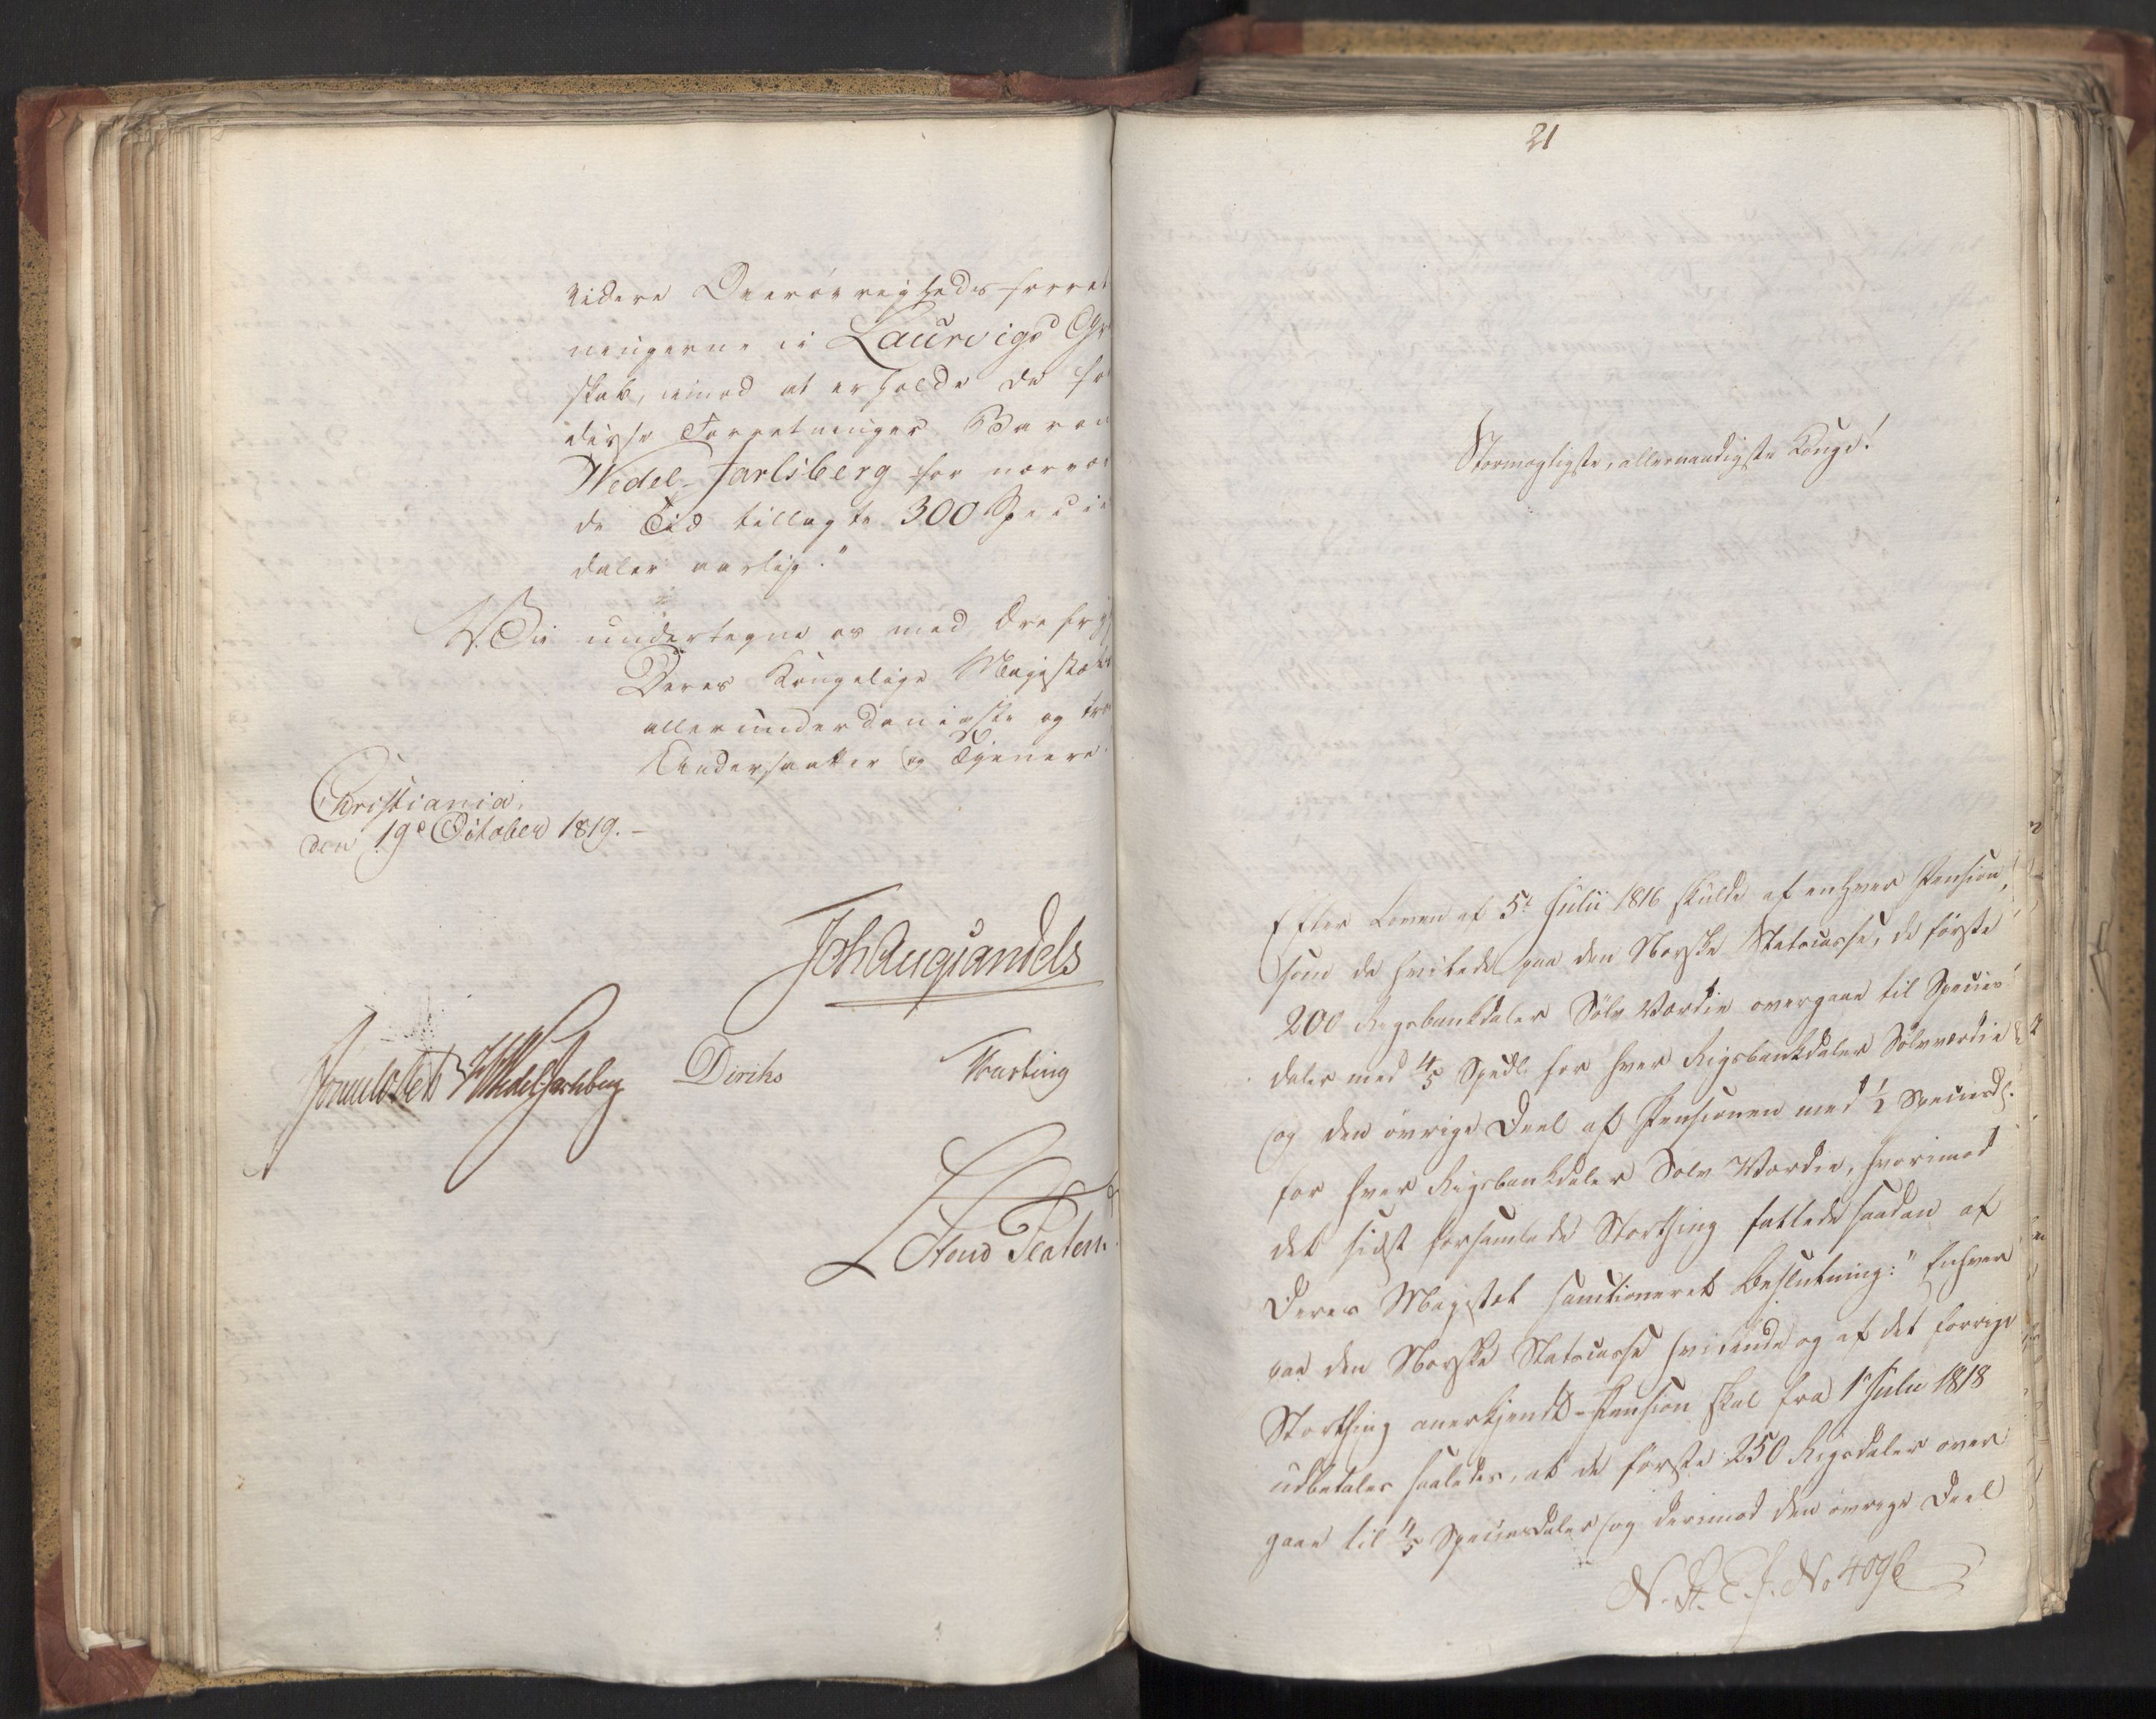 videre Overøvrigheds-forret
ningerne i Laurvigs Gr
skab, imod at erholde de for
disse Forretninger Baron
Wedel-Jarlsberg for nærvæ
de Tid tillagte 300 Specie
daler aarlig."
Vi undertegne os med Ærefrygt
Deres Kongelige Majestæts
allerunderdanigste og tro
Undersaatter og Tjenere.
Christiania,
den 19e October 1819.-
Joh Aug Sandels
Sommerfeldt HWedel Jarlsberg Diriks Fasting
Fr. Due
21
Stormægtigste, allernaadigste Konge!
Efter Loven af 5te Julii 1816 skulde af enhver Pension,
som da hvilede paa den Norske Statscasse, de første
200 Rigsbankdaler Sølv Værdie overgaae til Species
daler med 4/5 Spedl. for hver Rigsbankdaler Sølvværdie
og den øvrige Deel af Pensionen med 1/2 Speciesdl.
for hver Rigsbankdaler Sølv Værdie, hvorimod
det sidst forsamlede Storthing fattede saadan af
Deres Majestæt sanctioneret Beslutning: "Enhver
paa den Norske Statscasse hvilende og af det forrige
Storthing anerkjendt Pension skal fra 1 Julii 1818
udbetales saaledes, at de første 250 Rigsdaler over
gaae til 4/5 Speciesdaler og derimod den øvrige Deel
N. St. E. J. No 4096